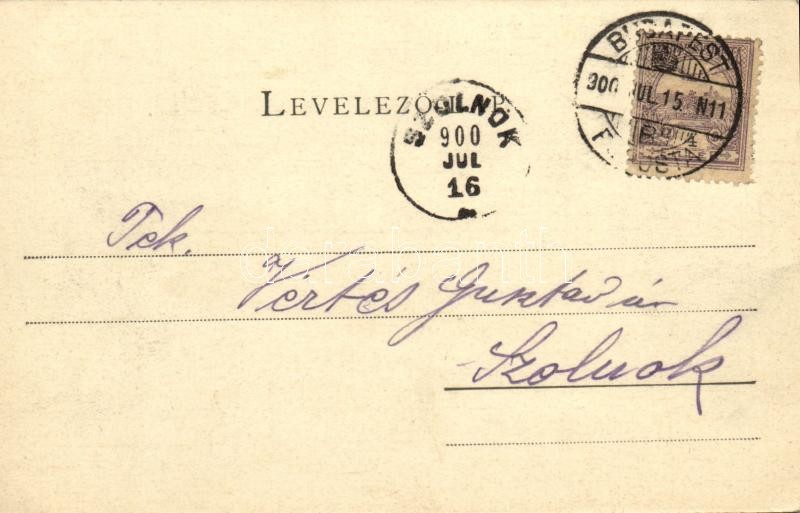 LEVELEZŐLAP
BUDAPEST
900 JUL 15. N11
SZOLNOK
900
JUL
16
Tek.
Vértés Gusztáv úr
Szolnok